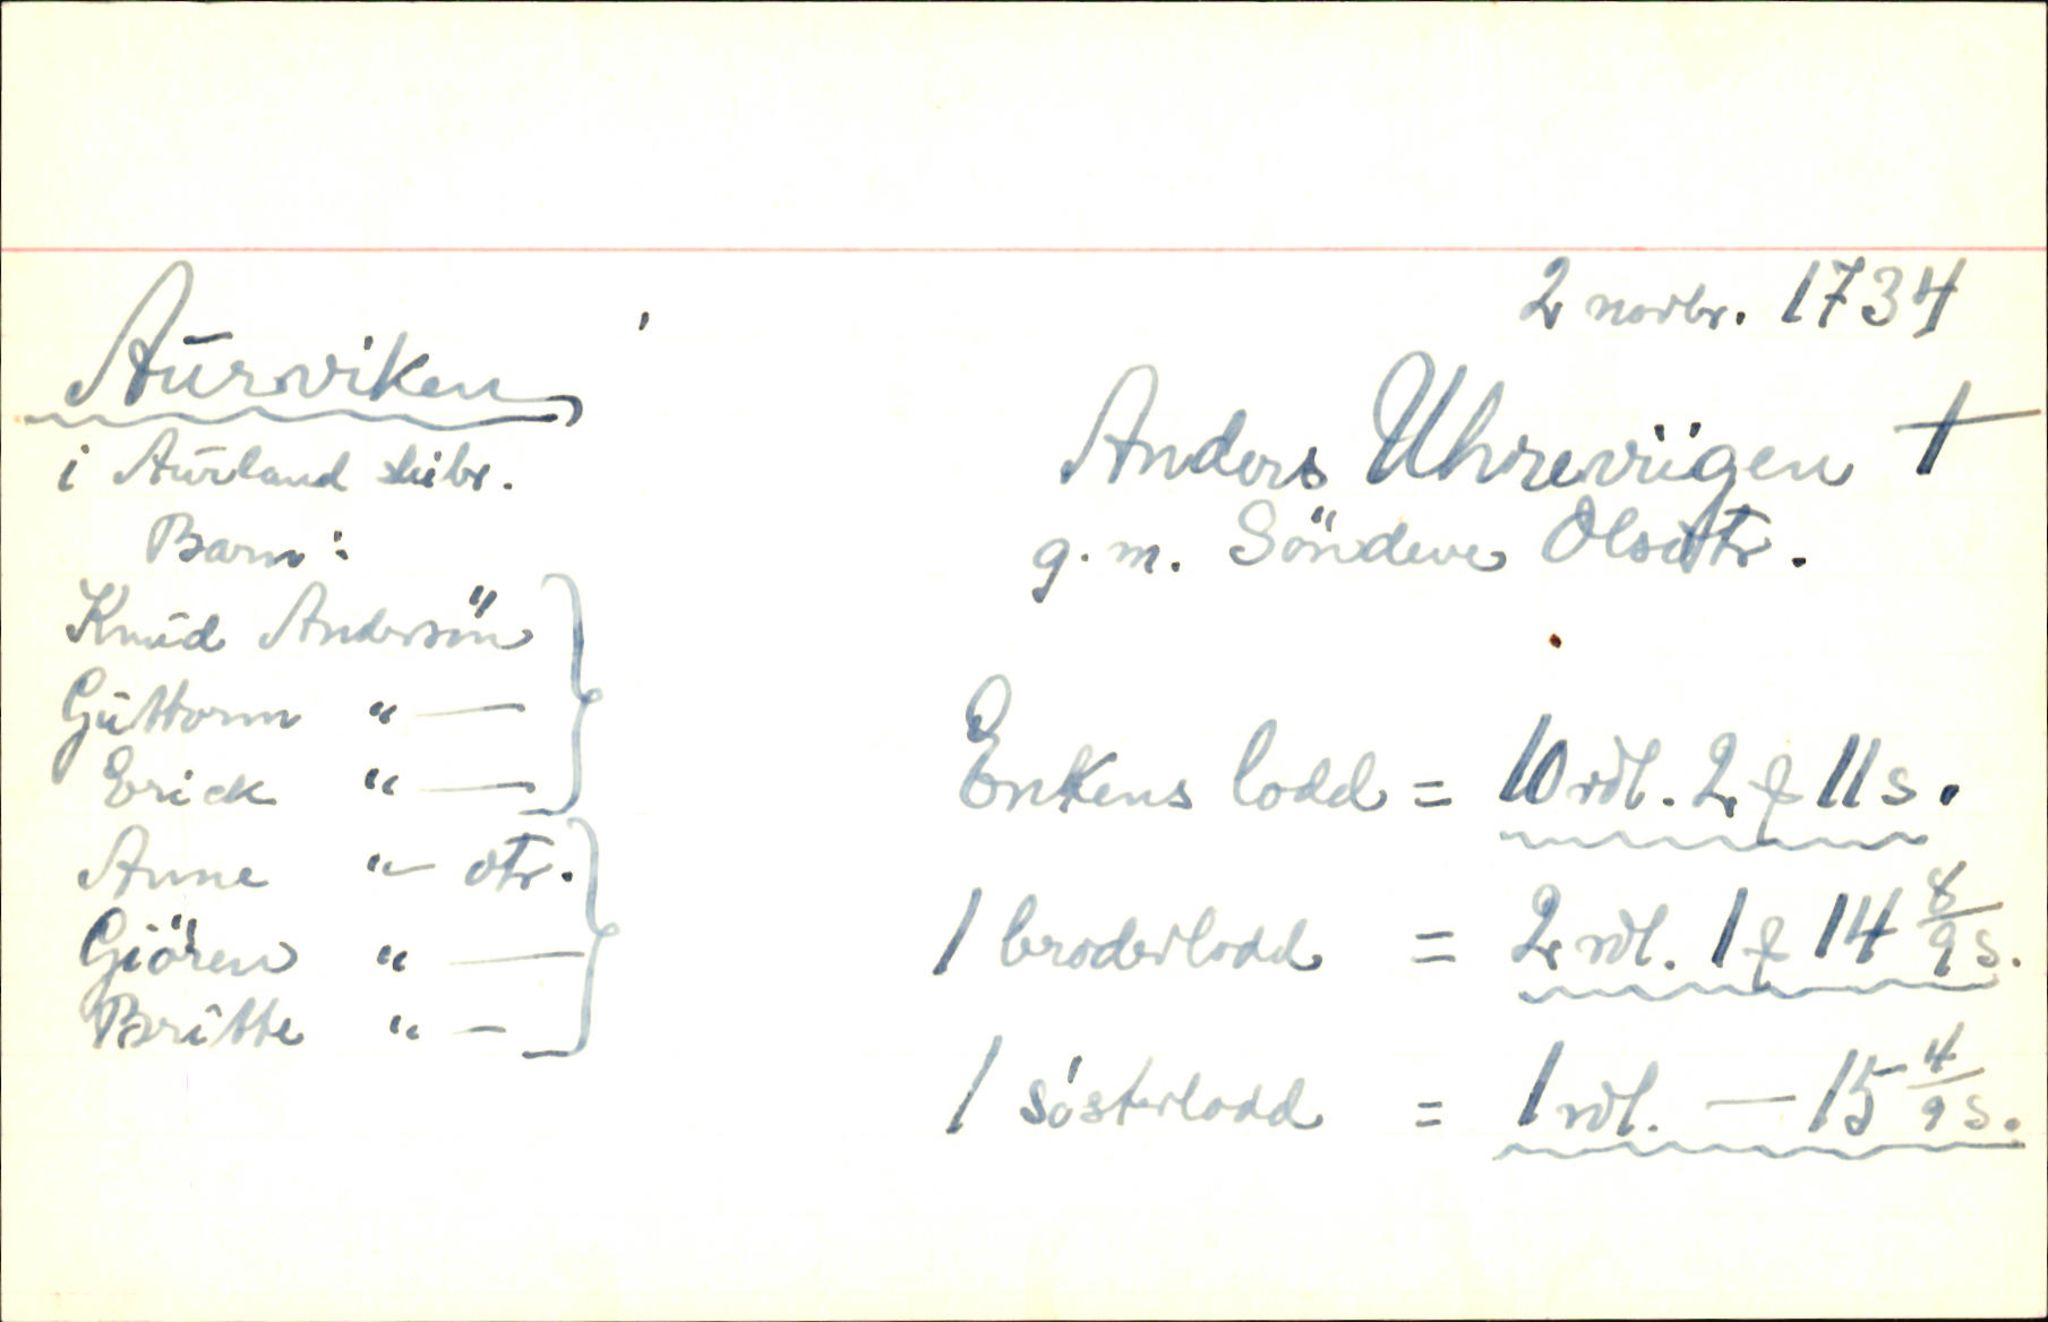 2 novbr. 1734
Aurviken,
i Aurland skibr.
Anders Uhreviigen †
g. m. Söndeve Olsdtr.
Barn:
Knud Andersön
Guttorm " —
Erick " —
Anne " — dtr.
Giören " —
Britte " —
Enkens lodd = 10 rdl. 2 ƒ 11 s.
1 broderlodd = 2 rdl. 1 ƒ 14 8/9 s.
1 sösterlodd = 1 rdl. — 15 4/9 s.